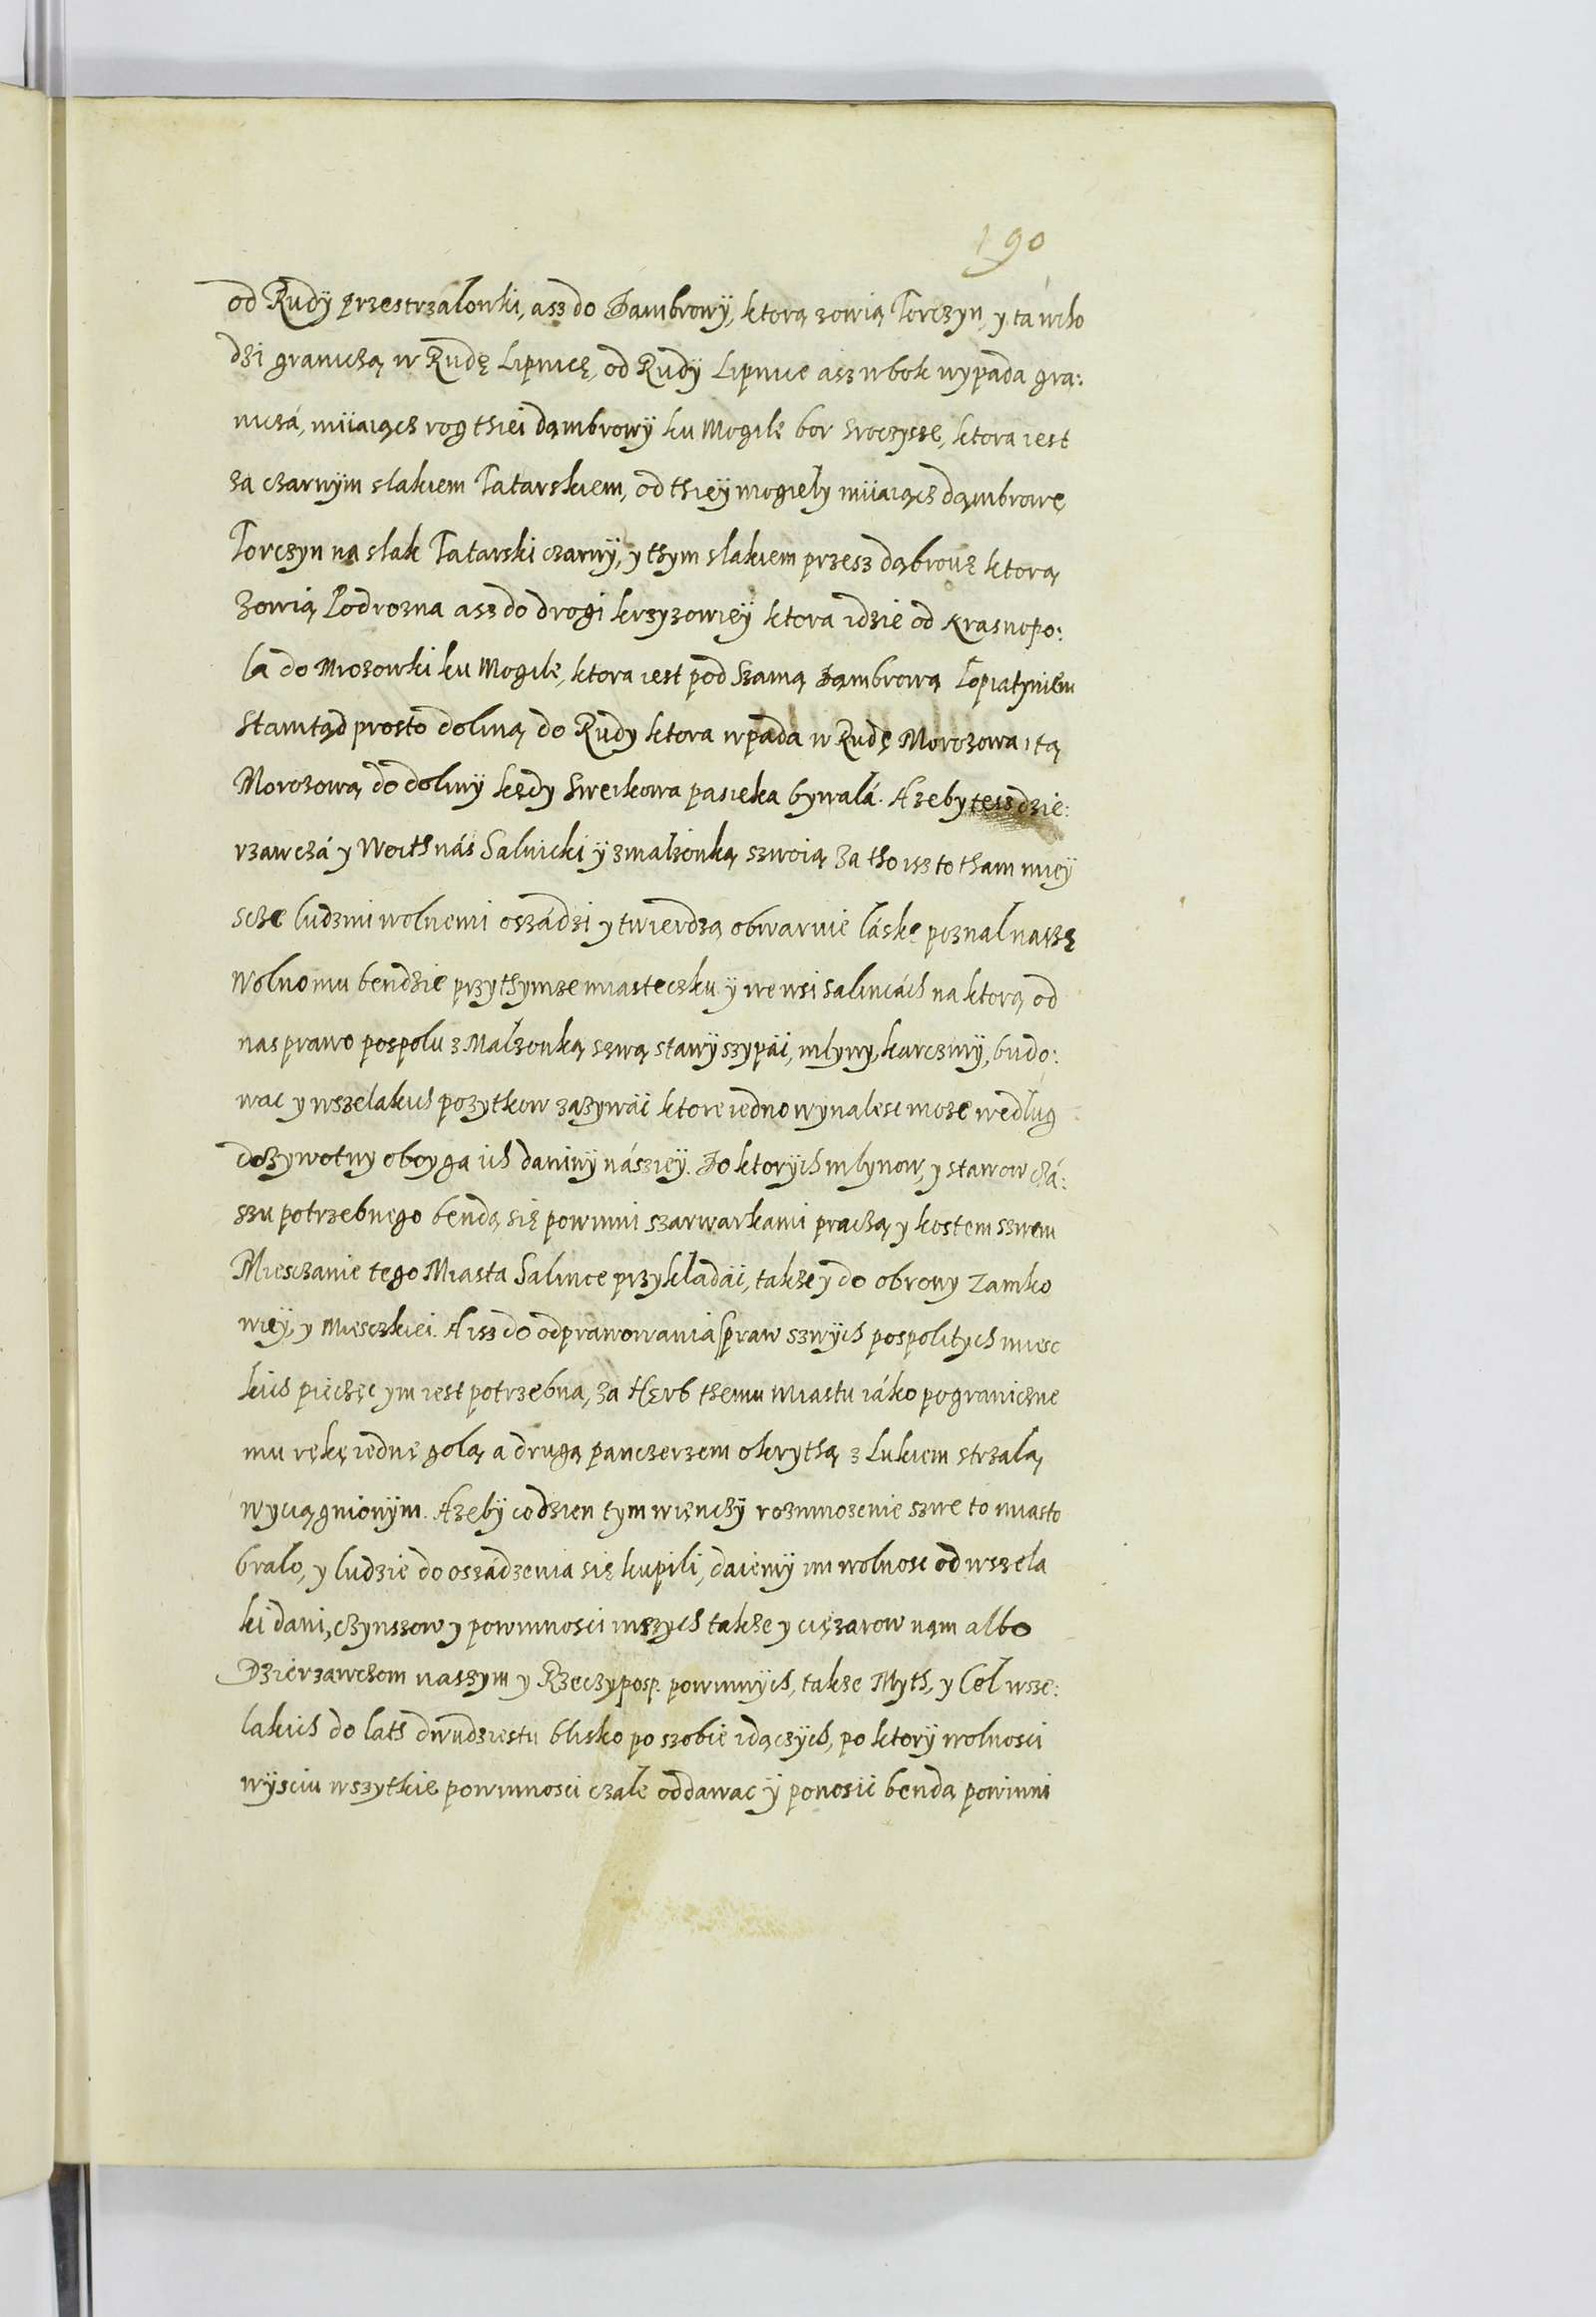 190
od Rudÿ Przestrzalowki, asz do Dambrowÿ, ktorą zowią Torczyn, y ta wcho
dzi graniczą w Rudę Lipnicę, od Rudÿ Lipnice asz w bok wypada gra:
niczá, miiaiącz rog thiei dąmbrowÿ ku Mogile bor Sroczysse, ktora iest
za czarnÿm slakiem Tatarskiem, od thieÿ mogiely miiaiącz dąmbrowę
Torczyn na slak Tatarski czarnÿ, y thym slakiem przesz dąbrowę ktorą
Zowią Podrozna asz do drogi krzyzowieÿ ktora idzie od Krasnopo:
la do Mrozowki ku Mogile, ktora iest pod Szamą Dąmbrową Lopiatyniem
Stamtąd prosto doliną do Rudy ktora wpada w Rudę Morozowa, tą
Morozową do dolinÿ kędy Sweikowa pasieka bywalá. Azeby tesz dzie:
rzawczá y Woith nás Salnicki ÿ z malzonką szwoią za tho isz to tham mieÿ
scze ludzmi wolnemi oszádzi y twierdzą obwarnie láskę poznal naszę
Wolno mu bendzie przy thymze miasteczku ÿ we wsi Salincách na ktorą od
nas prawo pospolu z Malzonką szwą stawÿ szypái, mlyny, karczmÿ, budo:
wac y wszelakich pozytkow zązywái ktore iedno wynalesc moze wedlug
dozywotny oboyga ich daninÿ násziey. Do ktorÿch mlynow, y stawow czá:
szu potrzebnego bendą się powinni szarwarkami praczą y kostem szwem
Miesczanie tego Miasta Salince przykladái, takze y do obrony Zamko
wieÿ, y Miesczkiei. A isz do odprawowania spraw szwÿch pospolitych miesc
kich pieczęc ym iest potrzebna, za Hęrb themu Miastu iáko pograniczne
mu rękę iednę golą a drugą panczerzem okrythą z lukiem strzalą
wyciągnionÿm. Azebÿ co dzien tym więnczÿ rozmnozenie szwe to miasto
bralo, y ludzie do oszádzenia się kupili, daiemÿ im wolnosc od wszela
ki dani, czynszow y powinnosci inszych takze y cięzarow nąm albo
Dzierzawczom naszym y Rzeczyposp. powinnÿch, takze Myth, y Cel wsze:
lakich do lath dwudziestu blisko po szobie idączÿch, po ktorÿ wolnosci
wÿsciu wszytkie powinnosci czale oddawac ÿ ponosic benda powinni